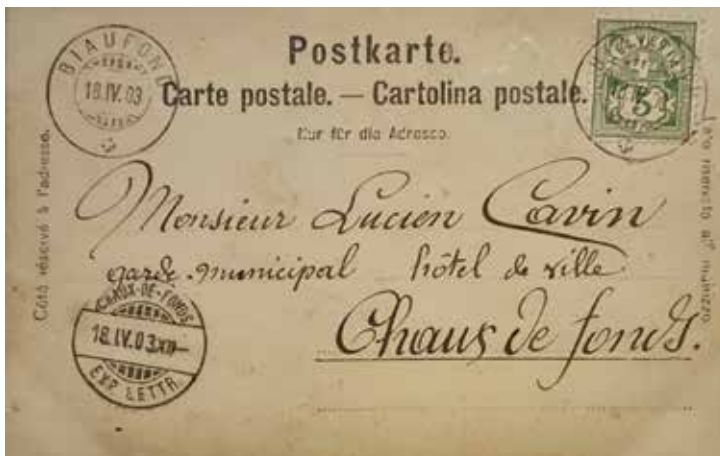 Postkarte.
Carte postale. — Cartolina postale.
Nur für die Adresse.
BIAUFOND
18.IV.03
HELVETIA
5
Côté réservé à l'adresse.
Lato riservato all' indirizzo
Monsieur Lucien Cavin
garde municipal hôtel de ville
Chaux de fonds.
CHAUX-DE-FONDS
18.IV.03.XII
EXP. LETTR.